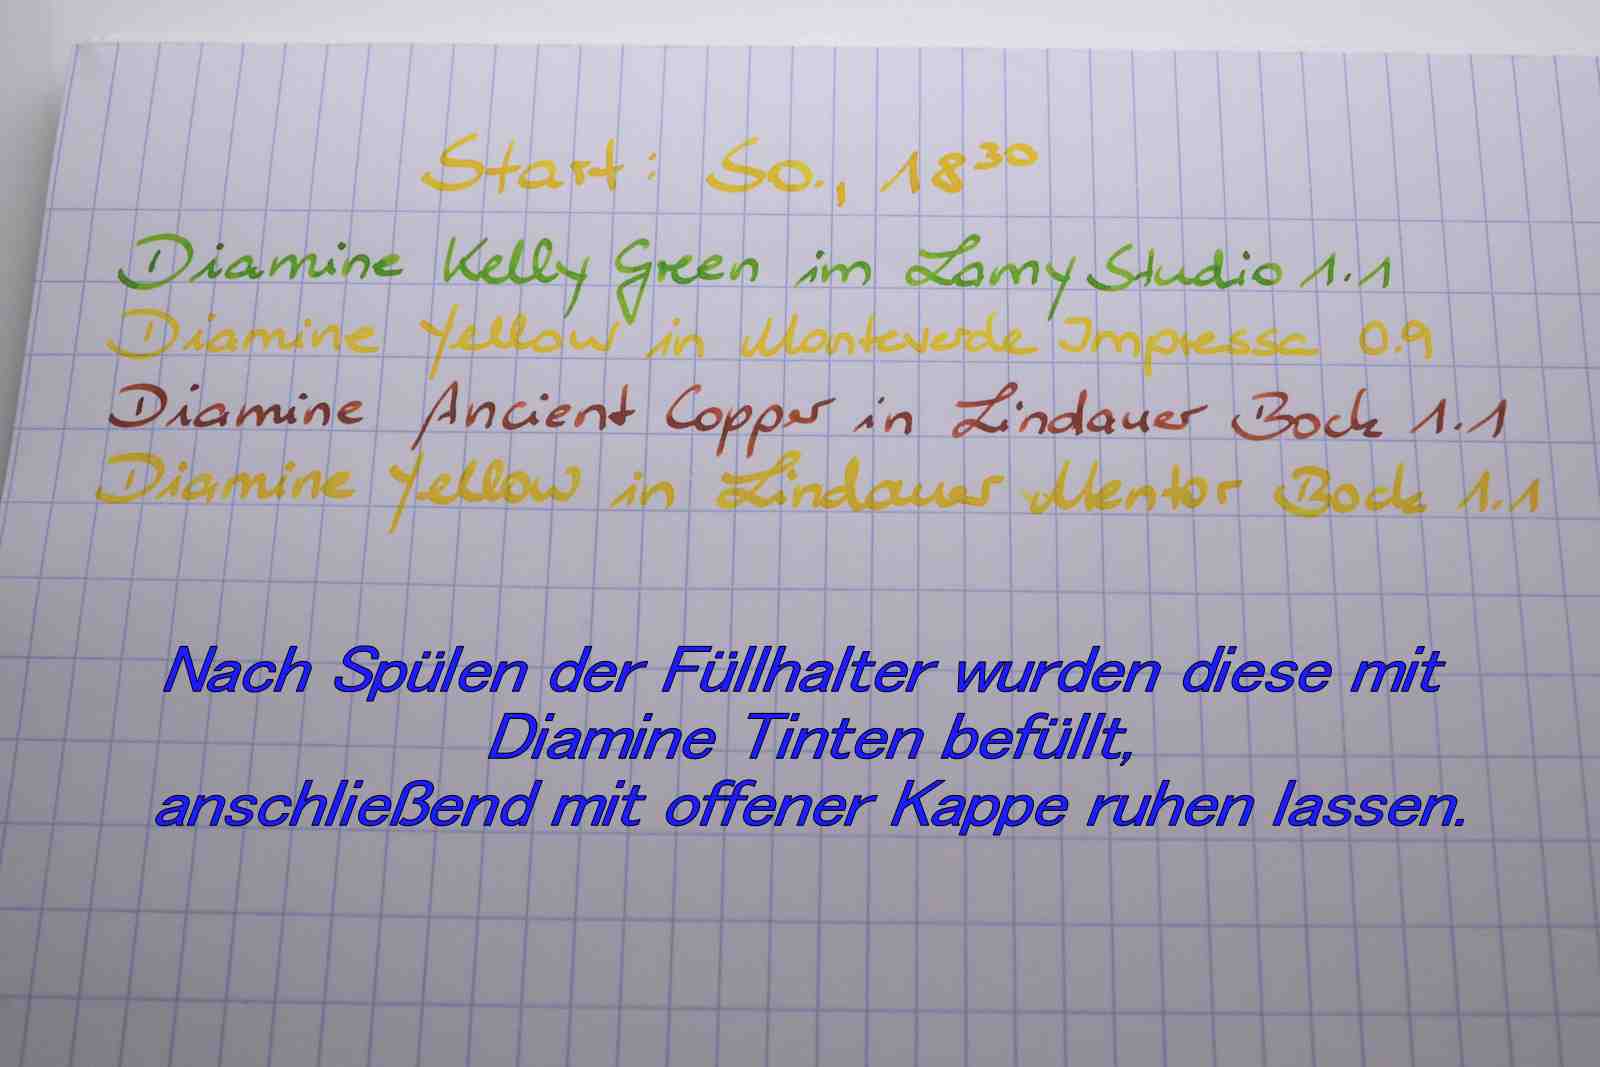 Start: So., 18³⁰
Diamine Kelly Green im Lamy Studio 1.1
Diamine Yellow in Monteverde Impressa 0.9
Diamine Ancient Copper in Lindauer Bock 1.1
Diamine Yellow in Lindauer Mentor Bock 1.1
Nach Spülen der Füllhalter wurden diese mit
Diamine Tinten befüllt,
anschließend mit offener Kappe ruhen lassen.